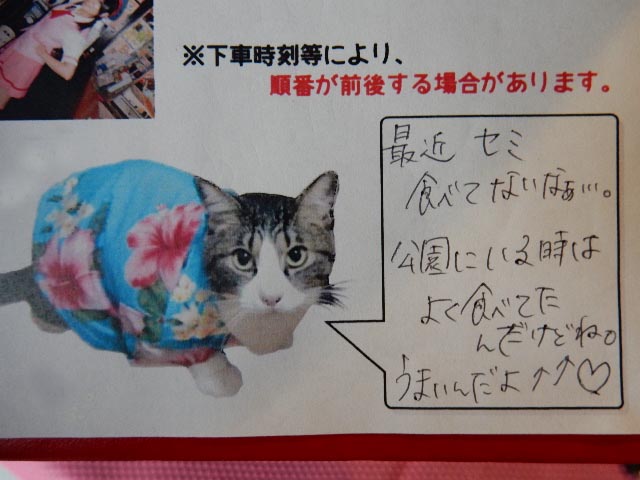 ※下車時刻等により、
順番が前後する場合があります。
最近 セミ
食べてないなぁ…。
公園にいる時は
よく食べてた
んだけどね。
うまいんだよ↑↑♡